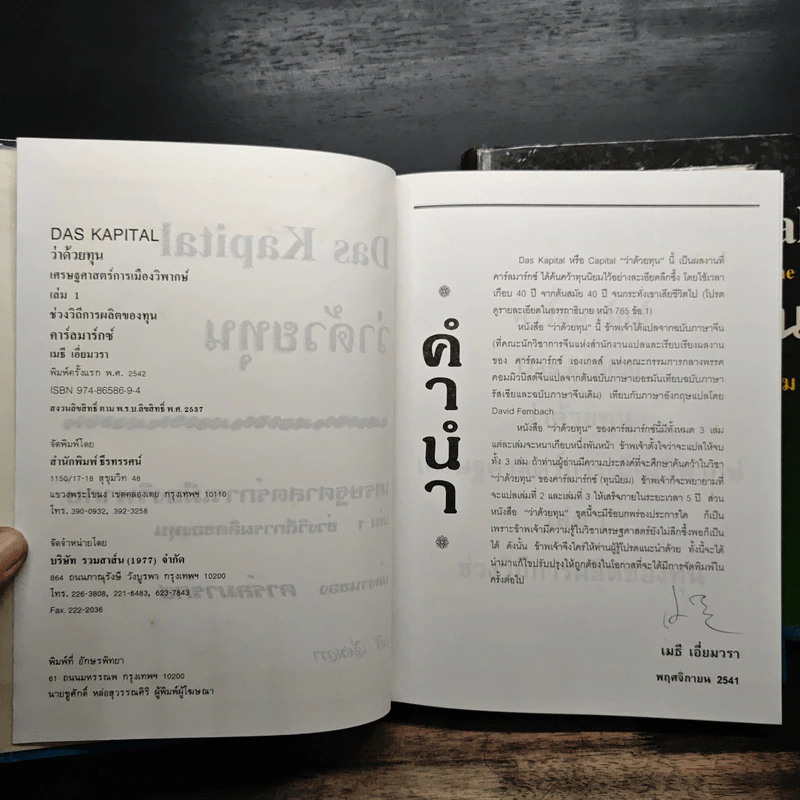 DAS KAPITAL
ว่าด้วยทุน
เศรษฐศาสตร์การเมืองวิพากษ์
เล่ม 1
ช่วงวิถีการผลิตของทุน
คาร์ลมาร์กซ์
เมธี เอี่ยมวรา
พิมพ์ครั้งแรก พ.ศ. 2542
ISBN 974-86586-9-4
สงวนลิขสิทธิ์ ตาม พ.ร.บ.ลิขสิทธิ์ พ.ศ. 2537
จัดพิมพ์โดย
สำนักพิมพ์ ธีรทรรศน์
1150/17-18 สุขุมวิท 48
แขวงพระโขนง เขตคลองเตย กรุงเทพฯ 10110
โทร. 390-0932, 392-3258
จัดจำหน่ายโดย
บริษัท รวมสาส์น (1977) จำกัด
864 ถนนภาณุรังษี วังบูรพา กรุงเทพฯ 10200
โทร. 226-3808, 221-6483, 623-7843
Fax. 222-2036
พิมพ์ที่ อักษรพิทยา
61 ถนนมหรรณพ กรุงเทพฯ 10200
นายชูศักดิ์ หล่อสุวรรณศิริ ผู้พิมพ์ผู้โฆษณา
คำนำ
Das Kapital หรือ Capital "ว่าด้วยทุน" นี้ เป็นผลงานที่
คาร์ลมาร์กซ์ ได้ค้นคว้าทุนนิยมไว้อย่างละเอียดลึกซึ้ง โดยใช้เวลา
เกือบ 40 ปี จากต้นสมัย 40 ปี จนกระทั่งเขาเสียชีวิตไป (โปรด
ดูรายละเอียดในอรรถาธิบาย หน้า 765 ข้อ 1)
หนังสือ "ว่าด้วยทุน" นี้ ข้าพเจ้าได้แปลจากฉบับภาษาจีน
(ที่คณะนักวิชาการจีนแห่งสำนักงานแปลและเรียบเรียงผลงาน
ของ คาร์ลมาร์กซ์ เองเกลส์ แห่งคณะกรรมการกลางพรรค
คอมมิวนิสต์จีนแปลจากต้นฉบับภาษาเยอรมันเทียบฉบับภาษา
รัสเซียและฉบับภาษาจีนเดิม) เทียบกับภาษาอังกฤษแปลโดย
David Fernbach
หนังสือ "ว่าด้วยทุน" ของคาร์ลมาร์กซ์นี้มีทั้งหมด 3 เล่ม
แต่ละเล่มจะหนาเกือบหนึ่งพันหน้า ข้าพเจ้าตั้งใจว่าจะแปลให้จบ
ทั้ง 3 เล่ม ถ้าท่านผู้อ่านมีความประสงค์ที่จะศึกษาค้นคว้าในวิชา
"ว่าด้วยทุน" ของคาร์ลมาร์กซ์ (ทุนนิยม) ข้าพเจ้าก็จะพยายามที่
จะแปลเล่มที่ 2 และเล่มที่ 3 ให้เสร็จภายในระยะเวลา 5 ปี ส่วน
หนังสือ "ว่าด้วยทุน" ชุดนี้จะมีข้อบกพร่องประการใด ก็เป็น
เพราะข้าพเจ้ามีความรู้ในวิชาเศรษฐศาสตร์ยังไม่ลึกซึ้งพอก็เป็น
ได้ ดังนั้น ข้าพเจ้าจึงใคร่ให้ท่านผู้รู้โปรดแนะนำด้วย ทั้งนี้จะได้
นำมาแก้ไขปรับปรุงให้ถูกต้องในโอกาสที่จะได้มีการจัดพิมพ์ใน
ครั้งต่อไป
เมธี เอี่ยมวรา
พฤศจิกายน 2541